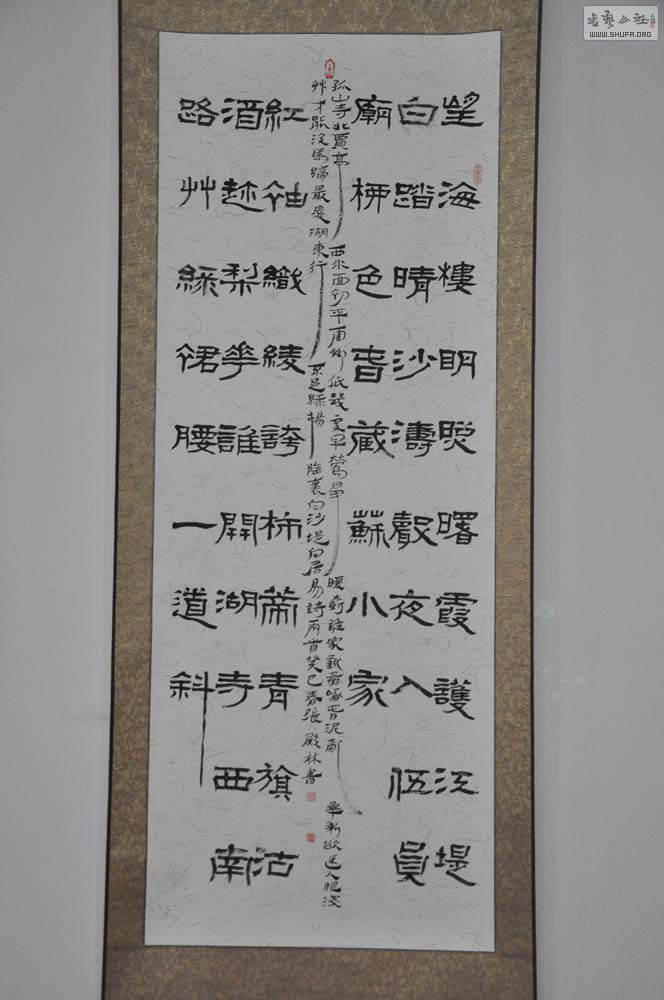 望海樓明照曙霞護江堤
白踏晴沙濤聲夜入伍員
廟柳色春藏蘇小家
孤山寺北賈亭西水面初平雲腳低幾處早鶯爭暖樹誰家新燕啄春泥亂華漸欲迷人眼淺
艸才能沒馬蹄最愛湖東行不足綠楊陰裏白沙堤白居易詩兩首癸巳春張殿林書
紅袖織綾誇柿蔕青旗沽
酒趁梨華誰開湖寺西南
路艸綠裙腰一道斜
書藝公社
WWW.SHUFA.ORG